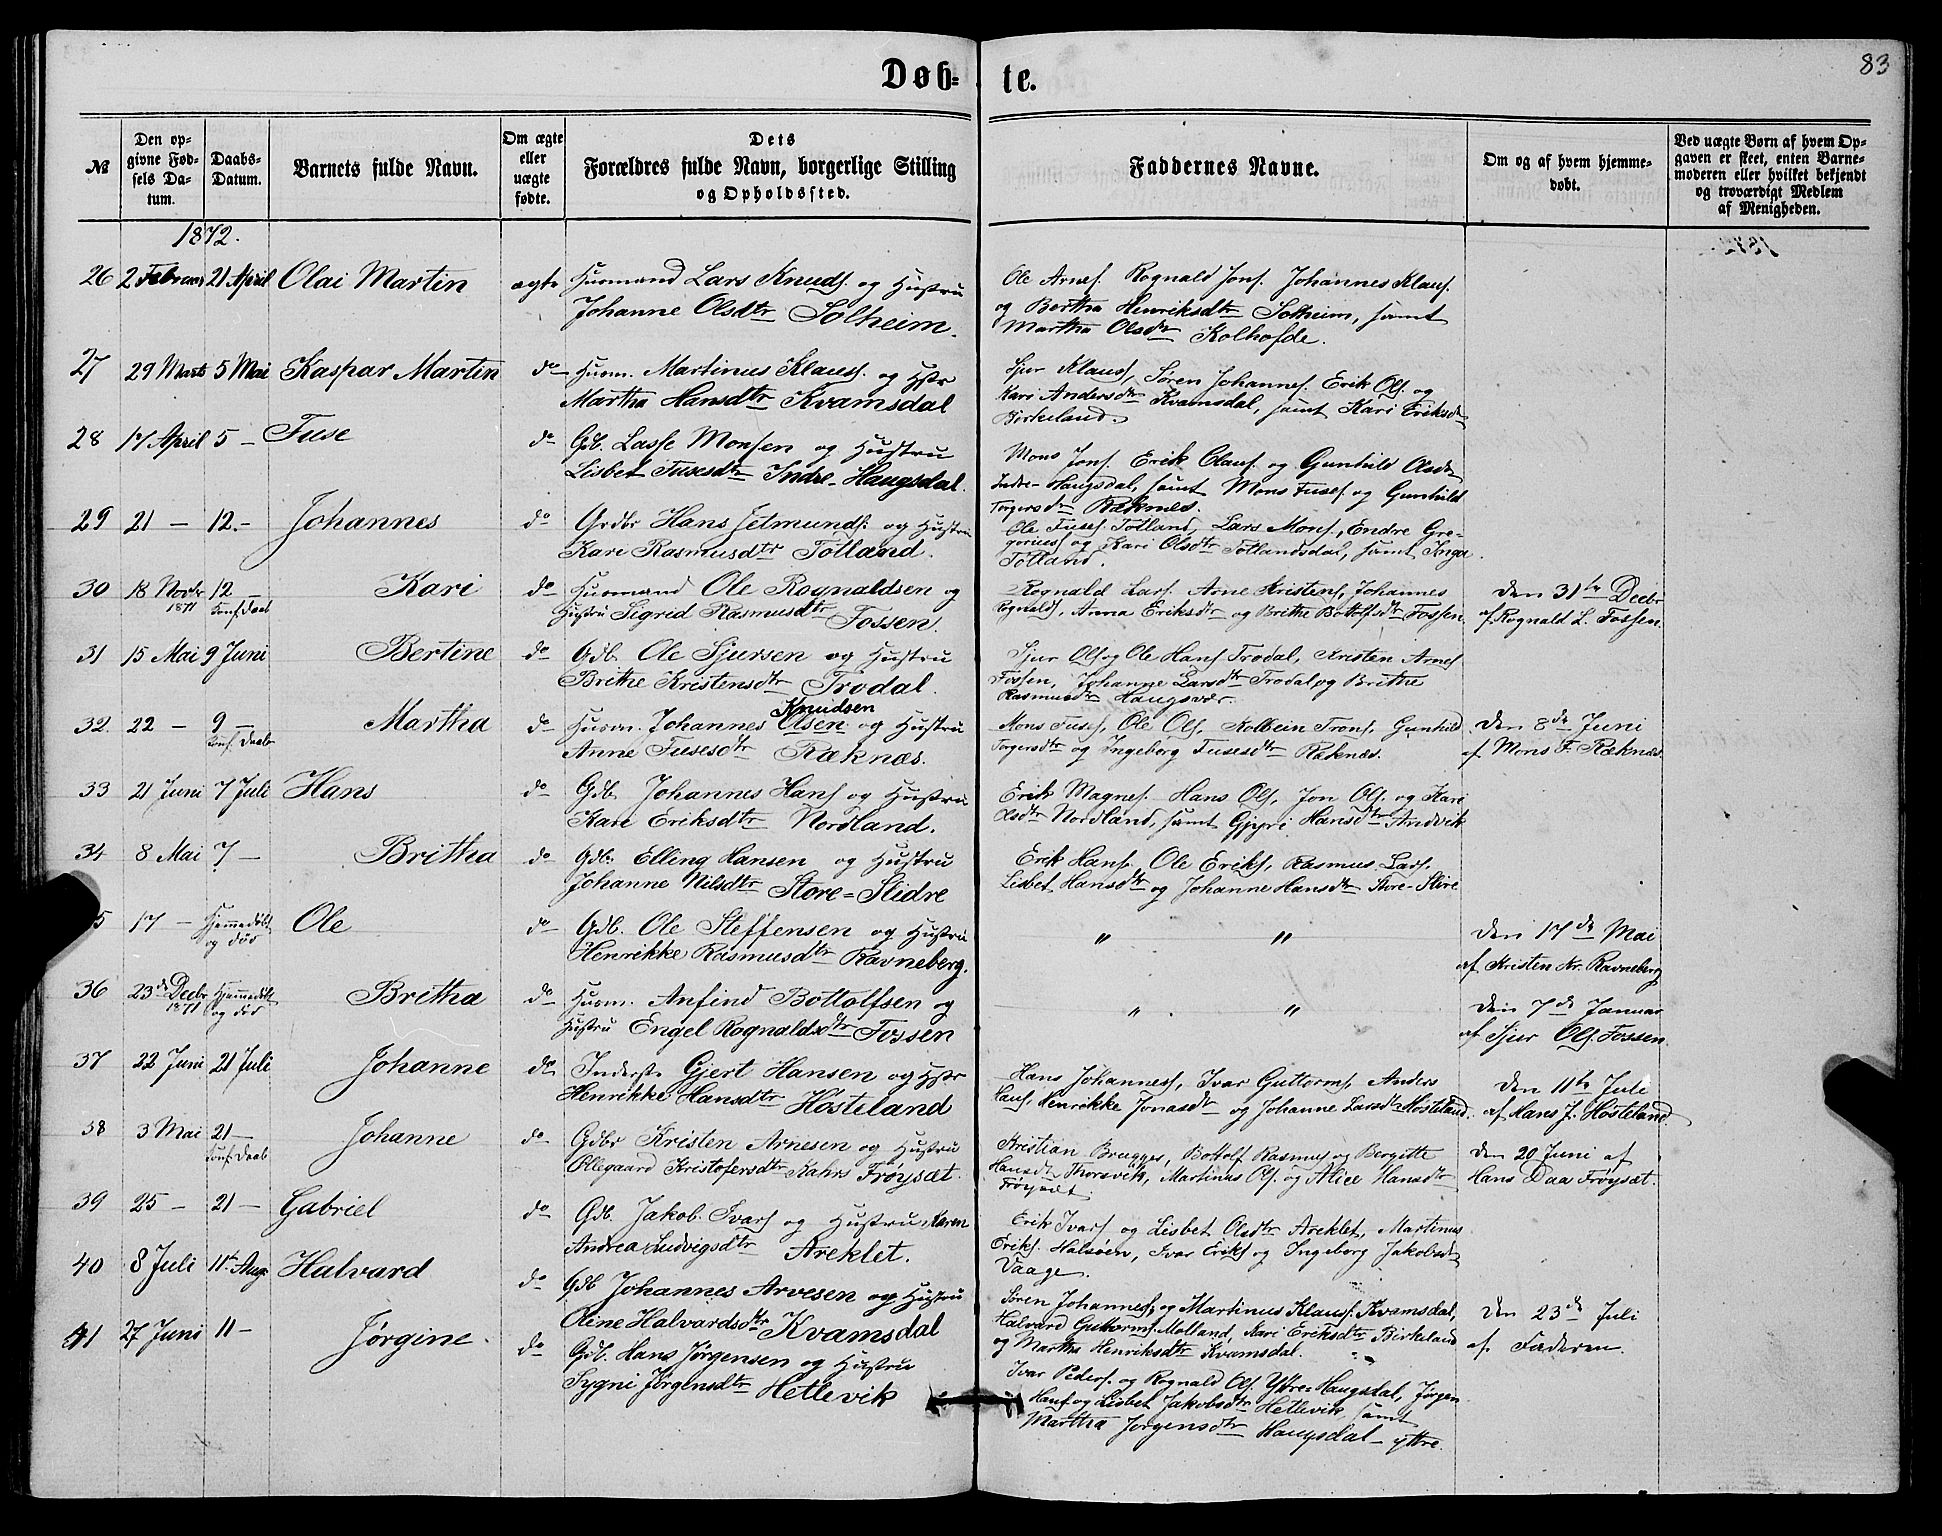 83
Døb-te.
№
Den opgivne Fødsels Datum.
Daabs-Datum.
Barnets fulde Navn.
Om ægte eller uægte fødte.
Dets Forældres fulde Navn, borgerlige Stilling og Opholdssted.
Faddernes Navne.
Om og af hvem hjemmedøbt.
Ved uægte Børn af hvem Opgaven er skeet, enten Barnemoderen eller hvilket bekjendt og troværdigt Medlem af Menigheden.
1872.
26 2 Februar 21 April Olai Martin ægte Huusmand Lars Knuds. og Hustru
Johanne Olsdtr Solheim.
Ole Arnes. Rognald Jons. Johannes Klaus.
og Bertha Henriksdtr Solheim, samt
Martha Olsdtr Kolhofde.
27 29 Marts 5 Mai Kaspar Martin do Huusm. Martinus Klaus. og Hstr
Martha Hansdtr Kvamsdal
Sjur Klaus, Søren Johannes. Erik Ols. og
Kari Andersdtr Kvamsdal, samt Kari Eriksdtr
Birkeland.
28 17 April 5 — Fuse do Gdb. Lasse Monsen og Hustru
Lisbet Fusesdtr Indre-Haugsdal.
Mons Jons. Erik Olaus. og Gunhild Olsdtr
Indre-Haugsdal, samt Mons Fuses. og Gunhild
Torgersdtr Ræknes.
29 21 — 12.- Johannes do Grdbr Hans Jetmunds. og Hustru
Kari Rasmusdtr Totland.
Ole Fuses. Totland, Lars Mons., Endre Gre-
gorius. og Kari Olsdtr Totlandsdal, samt Inga
Totland.
30 18 Novbr 1871 12 — Konf. Daab Kari do Huusmand Ole Rognaldsen og
Hustru Sigrid Rasmusdtr Fossen.
Rognald Lars. Arne Kristens, Johannes
Rognalds, Anna Eriksdtr og Brithe Bottolfsdtr Fossen.
Den 31te Decbr
af Rognald L. Fossen.
31 15 Mai 9 Juni Bertine do Gdb. Ole Sjursen og Hustru
Brithe Kristensdtr Trodal.
Sjur Ols. og Ole Hans. Trodal, Kristen Arnes
Fossen, Johanne Larsdtr Trodal, og Brithe
Rasmusdtr Haugsvær.
32. 22 — 9 — Konf. Daab Martha do Huusm. Johannes Olsen Knudsen og Hustru
Anne Fusesdtr Ræknæs.
Mons Fuses, Ole Ols, Kolbein Trons, Gunhild
Torgersdtr og Ingeborg Fusesdtr Ræknæs.
Den 8de Juni
af Mons F. Ræknæs.
33 21 Juni 7 Juli Hans do Gdb. Johannes Hans og Hustru
Kari Eriksdtr Nordland.
Erik Magnes. Hans Ols, Jon Ols. og Kari
Olsdtr Nordland, samt Gjyri Hansdtr Andvik
34 8 Mai 7 — Britha do Gdb. Elling Hansen og Hustru
Johanne Nilsdtr Store-Slidre
Erik Hans, Ole Eriks, Rasmus Lars.
Lisbet Hansdtr og Johanne Hansdtr Store-Slire
5 17 — Hjemmedøbt og død Ole do Gdb. Ole Steffensen og Hustru
Henrikke Rasmusdtr Ravneberg.
" "
Den 17de Mai
af Kristen Kr. Ravneberg
36 23de Decbr 1871 Hjemmedøbt og død Britha do Huusm. Anfind Bottolfsen og
Hustru Engel Rognaldsdtr Fossen
" "
Den 7de Januar
af Sjur Ols. Fossen.
37 22 Juni 21 Juli Johanne do Inderste Gjert Hansen og Hstr
Henrikke Hansdtr Hosteland
Hans Johannes, Ivar Guttorms, Anders
Hans, Henrikke Jonasdtr og Johanne Larsdtr Hosteland.
Den 11te Juli
af Hans J. Hosteland.
38 3 Mai 21 — Konf. Daab Johanne do Gdbr Kristen Arnesen og Hustru
Ollegaard Kristofersdtr Kahrs Frøysæt.
Kristian Brugges, Bottolf Rasmus. og Bergitte
Hansdtr Thorsvik, Martinus Ols. og Alice Hansdtr
Frøysæt
Den 20 Juni af
Hans Daa Frøysæt.
39 25 — 21 — Gabriel do Gdb. Jakob Ivars og Hustru, Karen
Andrea Ludvigsdtr Areklet.
Erik Ivars og Lisbet Olsdtr Areklet, Martinus
Eriks. Halsøen, Ivar Eriks og Ingeborg Jakobsdtr
Vaage.
40 8 Juli 11te Aug. Halvard do Gdb Johannes Arvesen og Hustru
Oline Halvardsdtr Kvamsdal
Søren Johannes, og Martinus Klaus. Kvamsdal,
Halvard Guttorms. Molland, Kari Eriksdtr Birkeland
og Martha Henriksdtr Kvamsdal.
Den 23de Juli
af Faderen.
41 27 Juni 11 — Jørgine do Gdb. Hans Jørgensen og Hustru
Sygni Jørgensdtr Hetlevik
Ivar Peders. og Rognald Ols. Yttre-Haugsdal, Jørgen
Hans og Lisbet Jakobsdtr Hetlevik, samt
Martha Jørgensdtr Haugsdal-yttre.